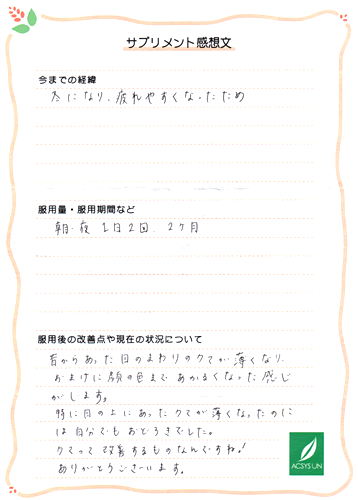 サプリメント感想文
今までの経緯
冬になり、疲れやすくなったため
服用量・服用期間など
朝・夜 1日2回、2ケ月
服用後の改善点や現在の状況について
昔からあった目のまわりのクマが薄くなり、
おまけに顔の色まであかるくなった感じ
がします。
特に目の上にあったクマが薄くなったのに
は自分でもおどろきでした。
クマって改善するものなんですね!
ありがとうございます。
ACSYSUN